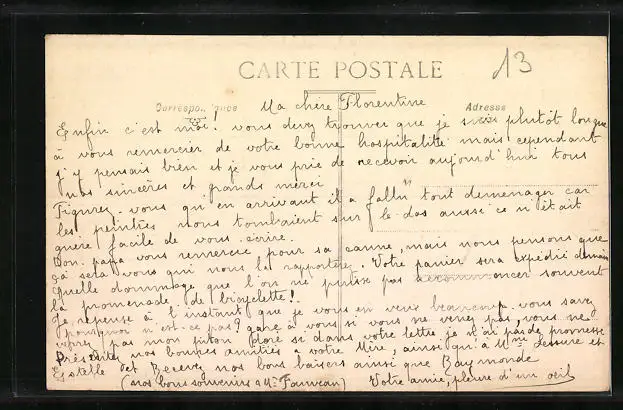 13
CARTE POSTALE
Correspondance
Adresse
Ma chère Florentine
Enfin c'est moi! vous devez trouver que je suis plutôt longue
à vous remercier de votre bonne hospitalité mais cependant
j'y pensais bien et je vous prie de recevoir aujourd'hui tous
nos sincères et grands merci
Figurez-vous qu'en arrivant il a fallu tout demenager car
les peintres nous tombaient sur le dos aussi ce n'était
guère facile de vous écrire.
Bon papa vous remercie pour sa canne, mais nous pensons que
ça sera vous qui nous la rapporterez. Votre panier sera expédié demain
Quelle dommage que l'on ne puisse pas recommencer souvent
la promenade de bicyclette!
Je repense à l'instant que je vous en veux beaucoup vous savez
pourquoi n'est-ce pas? gare à vous si vous ne venez pas, vous ne
verrez pas mon piton doré si dans votre lettre je n'ai pas de promesse
Présentez nos bonnes amitiés à votre Mère, ainsi qu'à Mme Lessure et
Estelle et Recevez nos bons baisers ainsi que Raymonde
(nos bons souvenirs à Mr Fauveau) Votre amie, pleure d'un œil